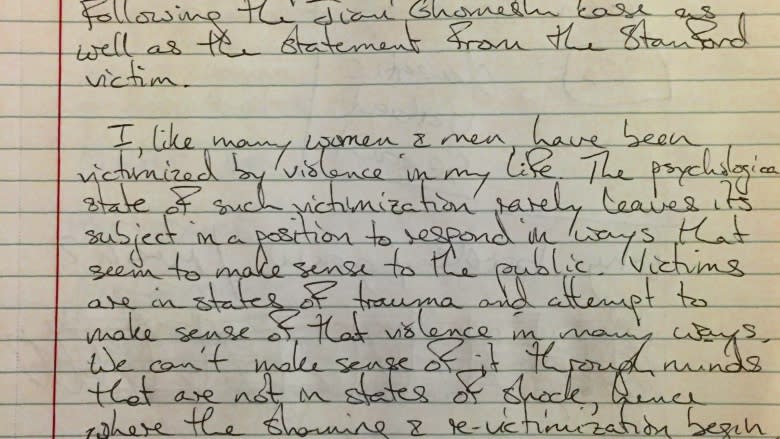 Following the Jian Ghomeshi case as
well as the statement from the Stanford
victim.
I, like many women & men, have been
victimized by violence in my life. The psychologica
state of such victimization rarely leaves its
subject in a position to respond in ways that
seem to make sense to the public. Victims
are in states of trauma and attempt to
make sense of that violence in many ways.
We can't make sense of it through minds
that are not in states of shock, hence
where the shaming & re-victimization begin